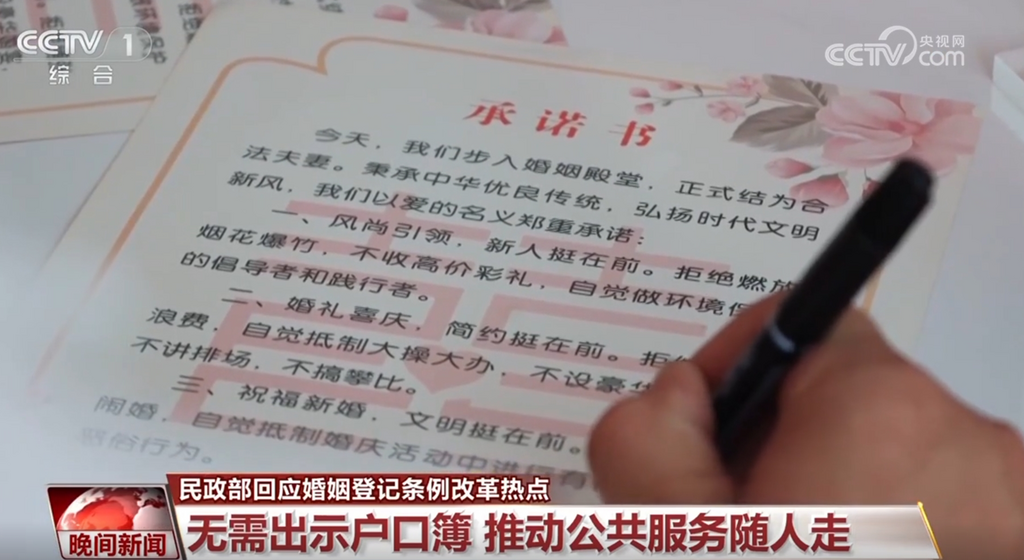 CCTV 1
综合
央视网
CCTV.com
承诺书
今天，我们步入婚姻殿堂，正式结为合
法夫妻。秉承中华优良传统，弘扬时代文明
新风，我们以爱的名义郑重承诺：
一、风尚引领，新人挺在前。拒绝燃放
烟花爆竹，不收高价彩礼，自觉做环境保
的倡导者和践行者。
二、婚礼喜庆，简约挺在前。拒
浪费，自觉抵制大操大办，不设豪
不讲排场，不搞攀比。
三、祝福新婚，文明挺在前。
闹婚，自觉抵制婚庆活动中进行有
恶俗行为。
民政部回应婚姻登记条例改革热点
晚间新闻
无需出示户口簿 推动公共服务随人走